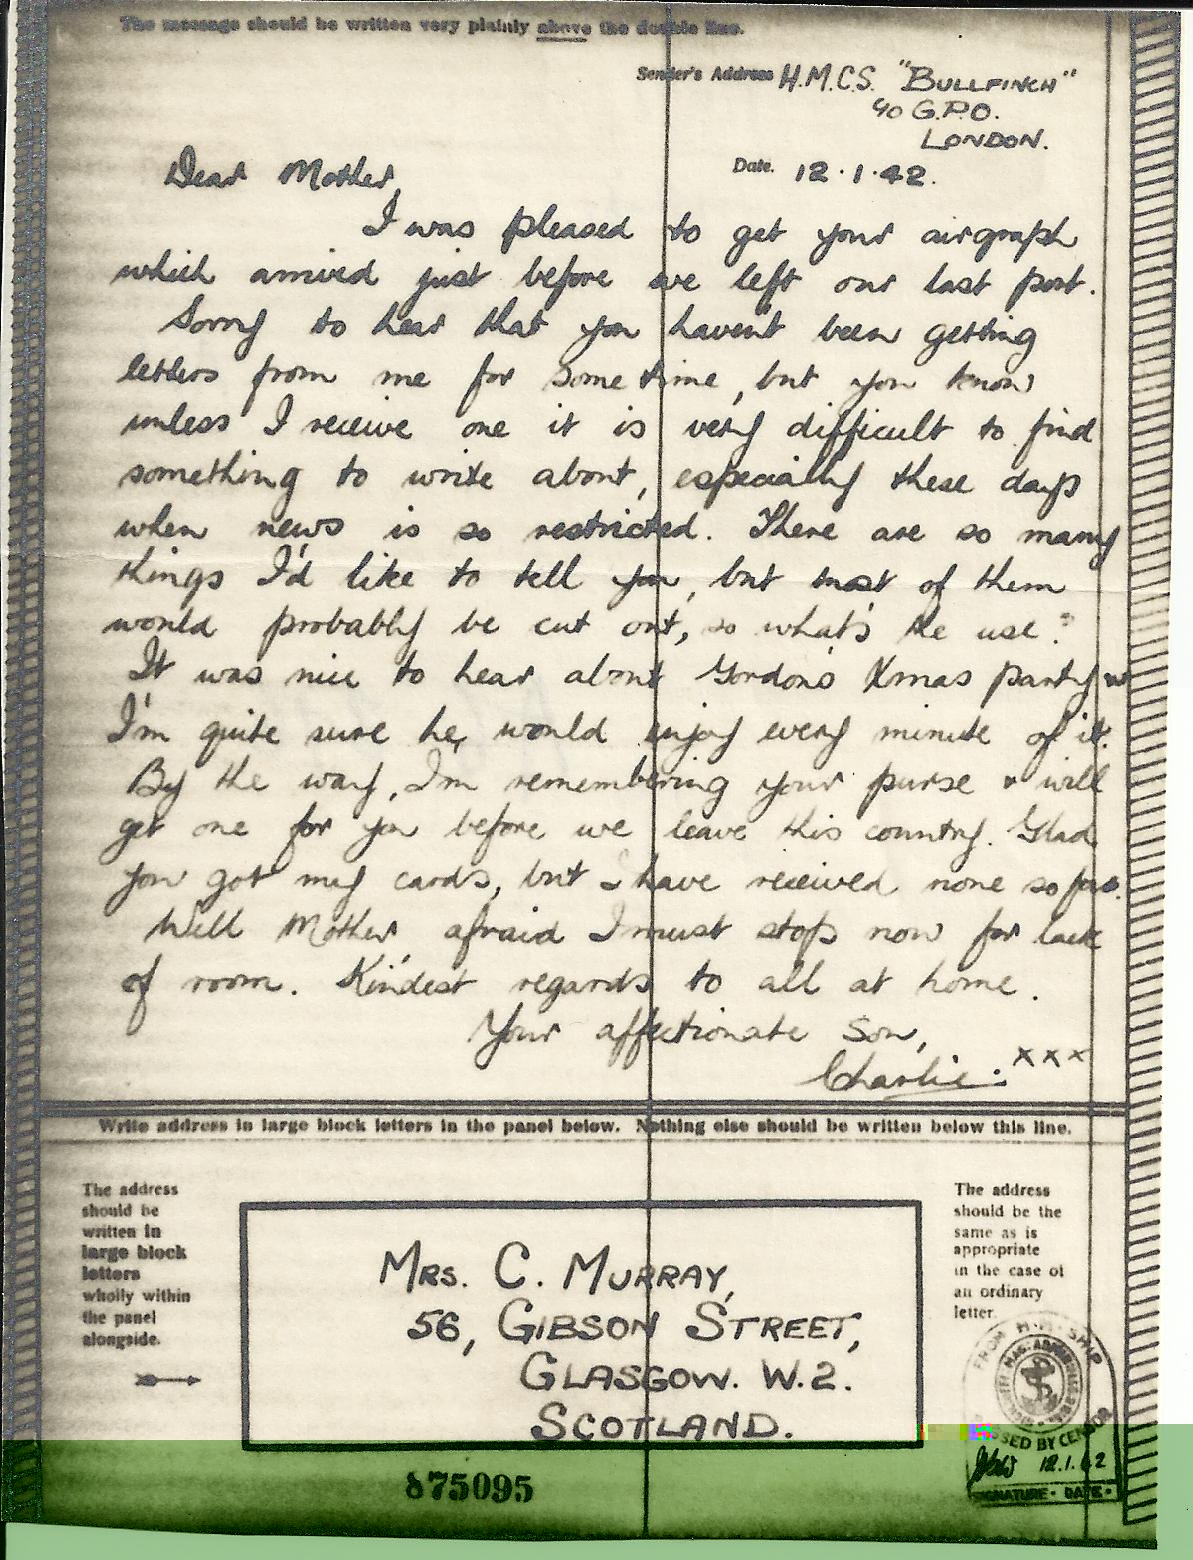 The message should be written very plainly above the double line.
Sender's Address H.M.C.S. "BULLFINCH"
c/o G.P.O.
LONDON.
Date. 12.1.42.
Dear Mother,
I was pleased to get your airgraph
which arrived just before we left our last port.
Sorry to hear that you haven't been getting
letters from me for some time, but you know
unless I receive one it is very difficult to find
something to write about, especially these days
when news is so restricted. There are so many
things I'd like to tell you, but most of them
would probably be cut out, so what's the use?
It was nice to hear about Gordon's Xmas party &
I'm quite sure he would enjoy every minute of it.
By the way, I'm remembering your purse & will
get one for you before we leave this country. Glad
you got my cards, but I have received none so far.
Well Mother afraid I must stop now for lack
of room. Kindest regards to all at home.
Your affectionate Son,
Charlie. xxx
Write address in large block letters in the panel below. Nothing else should be written below this line.
The address
should be
written in
large block
letters
wholly within
the panel
alongside.
MRS. C. MURRAY,
56, GIBSON STREET,
GLASGOW. W.2.
SCOTLAND.
The address
should be the
same as is
appropriate
in the case of
an ordinary
letter.
FROM H.M. SHIP
PASSED BY CENSOR
12.1.42
SIGNATURE - DATE -
875095